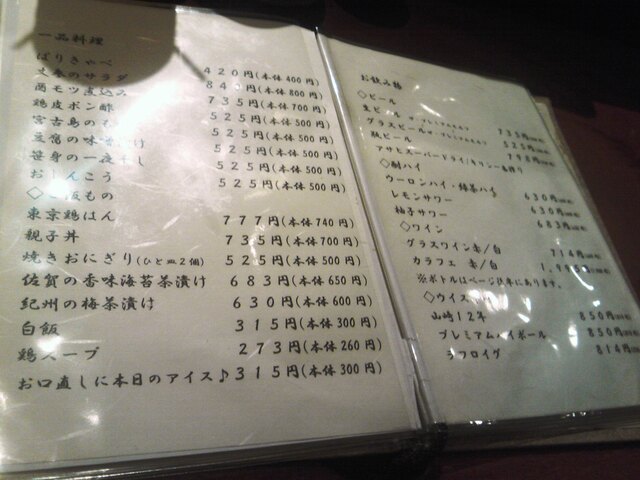 一品料理
ばりきゃべ 420円(本体400円)
大根のサラダ 840円(本体800円)
鶏モツ煮込み 735円(本体700円)
鶏皮ポン酢 525円(本体500円)
宮古島の 525円(本体500円)
豆腐の味噌漬け 525円(本体500円)
笹身の一夜干し 525円(本体500円)
おしんこう 525円(本体500円)
◇ご飯もの
東京鶏はん 777円(本体740円)
親子丼 735円(本体700円)
焼きおにぎり(ひと皿2個) 525円(本体500円)
佐賀の香味海苔茶漬け 683円(本体650円)
紀州の梅茶漬け 630円(本体600円)
白飯 315円(本体300円)
鶏スープ 273円(本体260円)
お口直しに本日のアイス♪315円(本体300円)
お飲み物
◇ビール
生ビール ザ・プレミアムモルツ 735円
グラスビール ザ・プレミアムモルツ 525円
瓶ビール 798円
アサヒスーパードライ/キリン一番搾り
◇酎ハイ
ウーロンハイ・緑茶ハイ 630円
レモンサワー 630円
柚子サワー 683円
◇ワイン
グラスワイン 赤/白 714円
カラフェ 赤/白 1,995円
※ボトルはページ後半にあります。
◇ウイスキー
山崎12年 850円
プレミアムハイボール 850円
ラフロイグ 814円